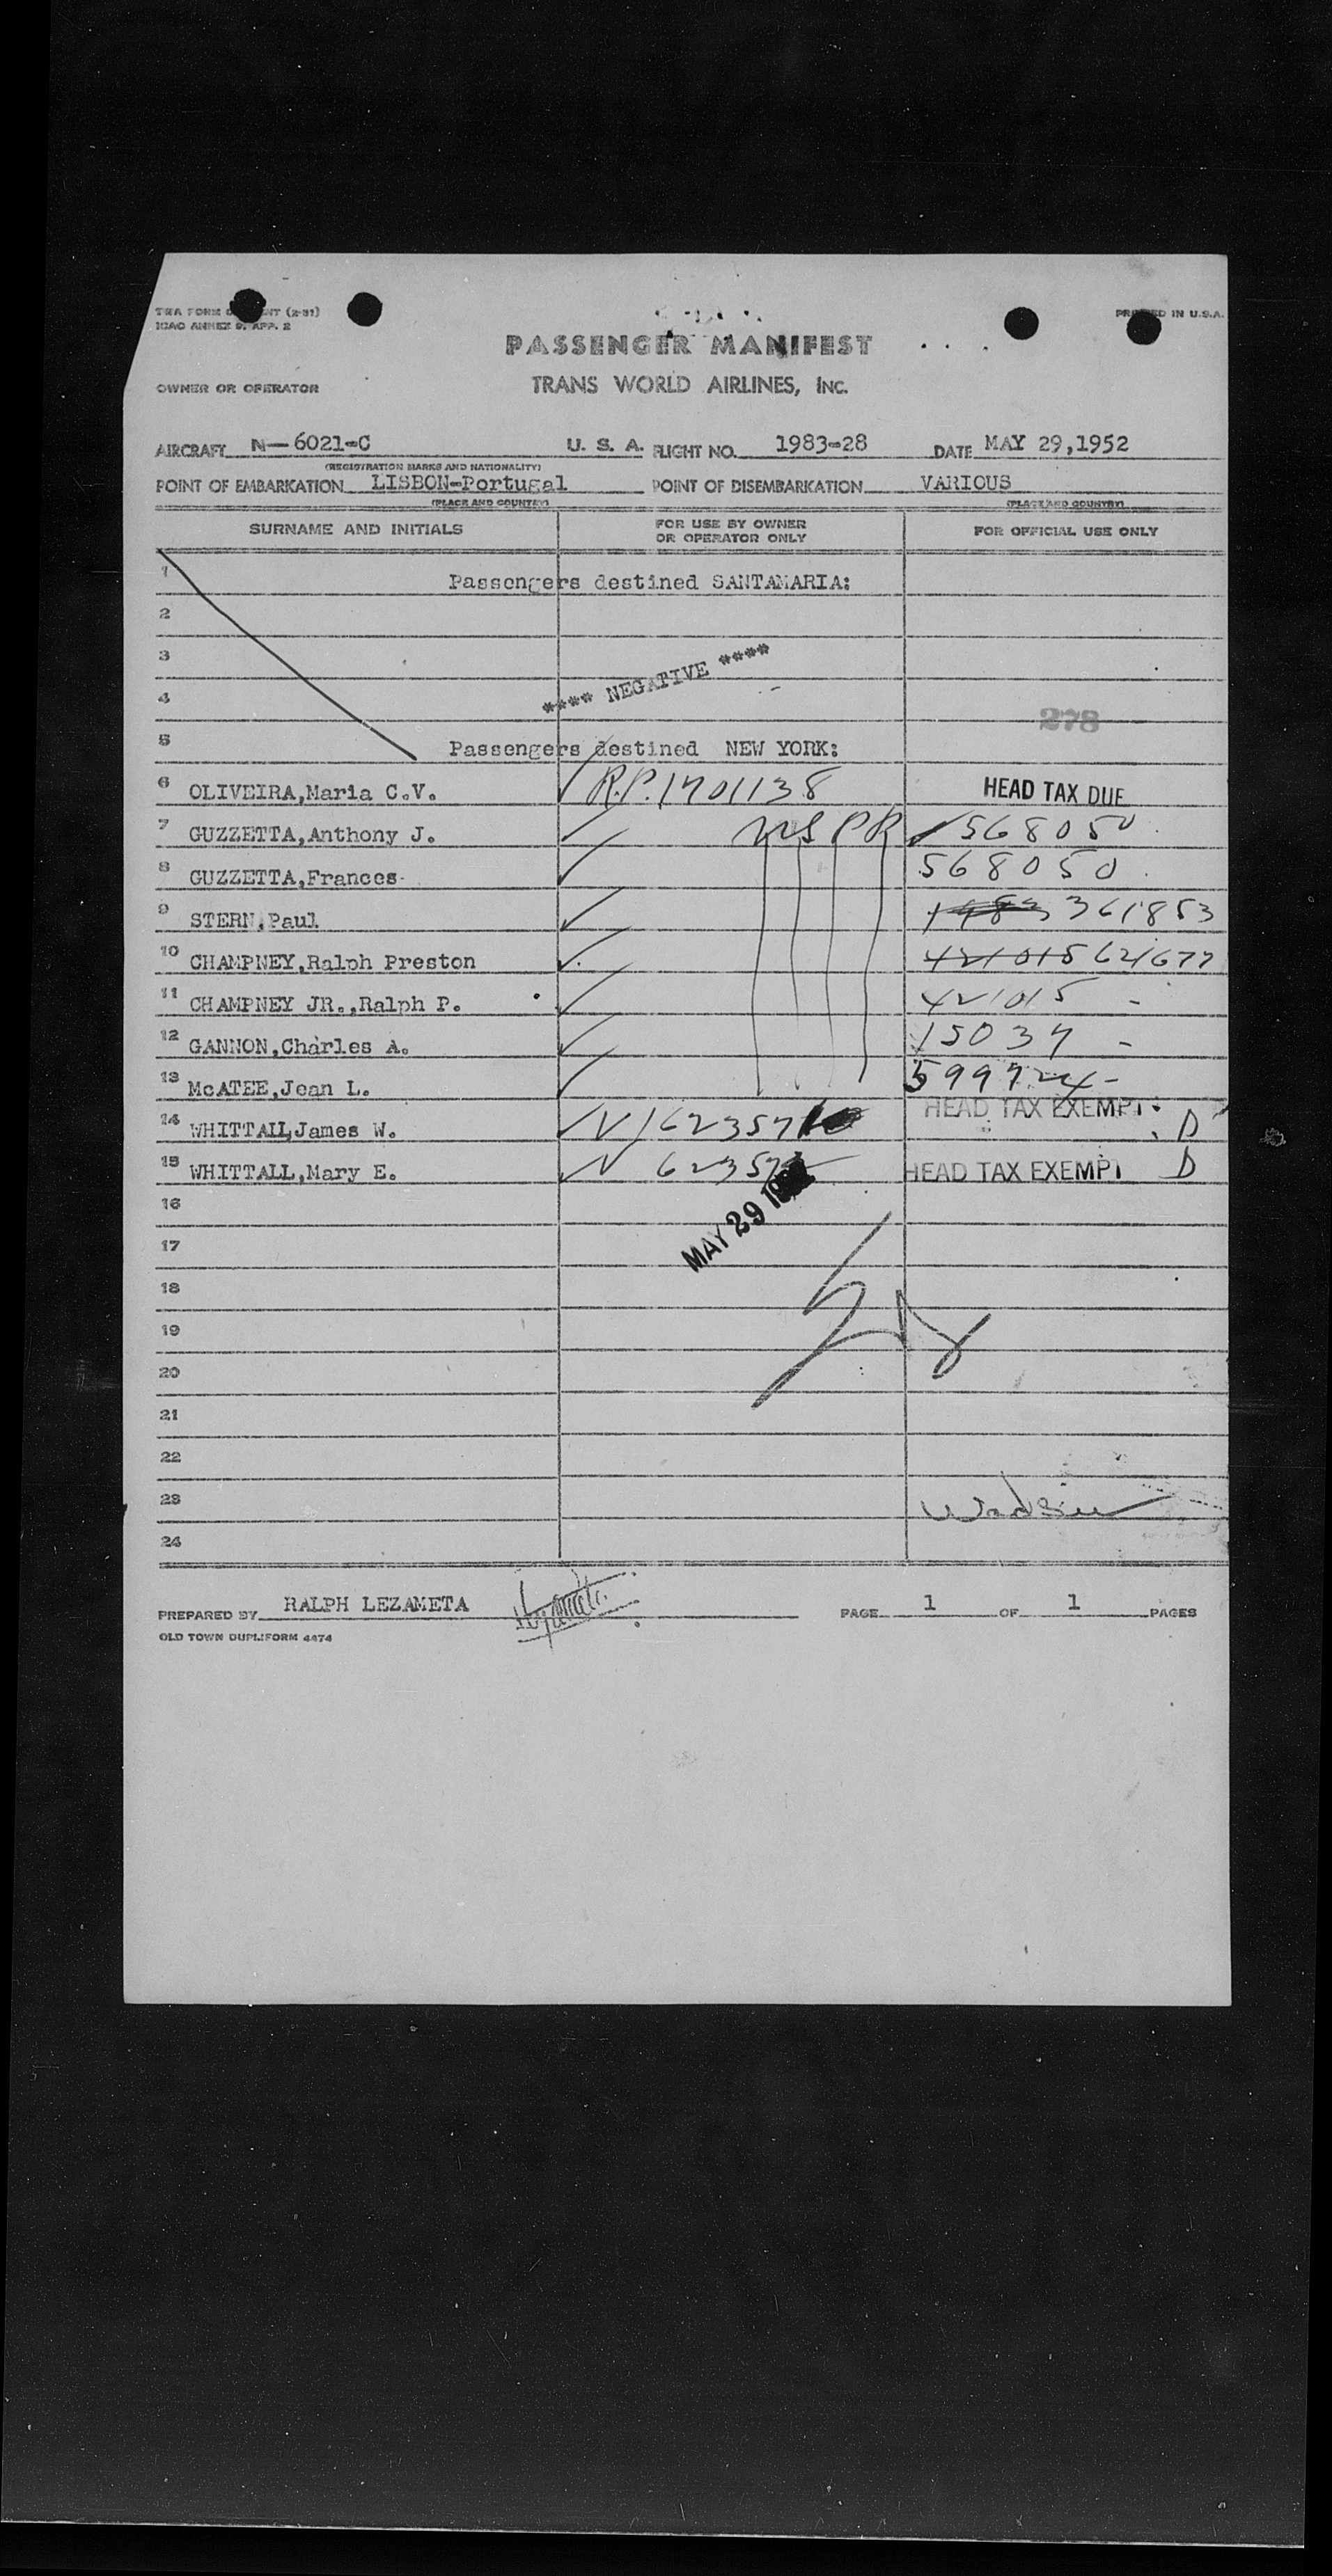 ICAO ANNEX 9, APP. 2
PRINTED IN U.S.A.
PASSENGER MANIFEST
OWNER OR OPERATOR TRANS WORLD AIRLINES, INC.
AIRCRAFT N-6021-C U. S. A. FLIGHT NO. 1983-28 DATE MAY 29,1952
(REGISTRATION MARKS AND NATIONALITY)
POINT OF EMBARKATION LISBON-Portugal POINT OF DISEMBARKATION VARIOUS
(PLACE AND COUNTRY) (PLACE AND COUNTRY)
SURNAME AND INITIALS FOR USE BY OWNER OR OPERATOR ONLY FOR OFFICIAL USE ONLY
1 Passengers destined SANTAMARIA:
2
3
4 **** NEGATIVE ****
278
5 Passengers destined NEW YORK:
6 OLIVEIRA,Maria C.V. R.P.1701138 HEAD TAX DUE
7 GUZZETTA,Anthony J. US PP 568050
8 GUZZETTA,Frances 568050
9 STERN,Paul 361853
10 CHAMPNEY,Ralph Preston 421015 621677
11 CHAMPNEY JR.,Ralph P. 421015 -
12 GANNON,Charles A. 15037 -
13 McATEE,Jean L. 599724-
14 WHITTALL,James W. HEAD TAX EXEMPT D
15 WHITTALL,Mary E. HEAD TAX EXEMPT D
16
MAY 29 1952
17
18
19
20
21
22
23
24
PREPARED BY RALPH LEZAMETA PAGE 1 OF 1 PAGES
OLD TOWN DUPLIFORM 4474